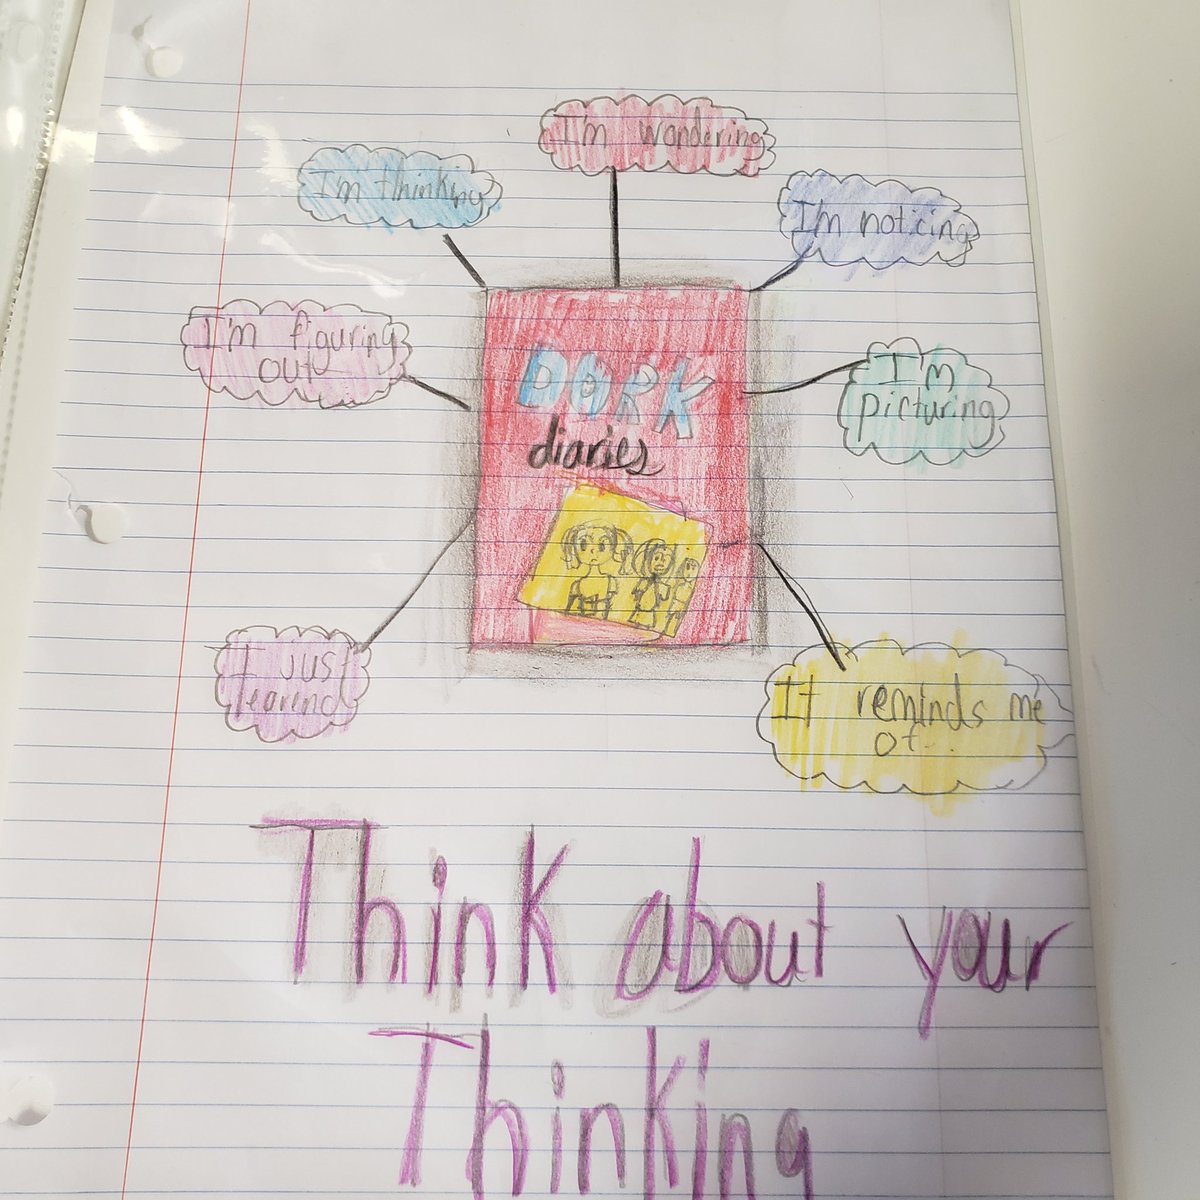 I'm wondering
I'm thinking
I'm noticing
I'm figuring
out
I'm
picturing
DORK
diaries
I just
learind
It reminds me
of...
Think about your
Thinking